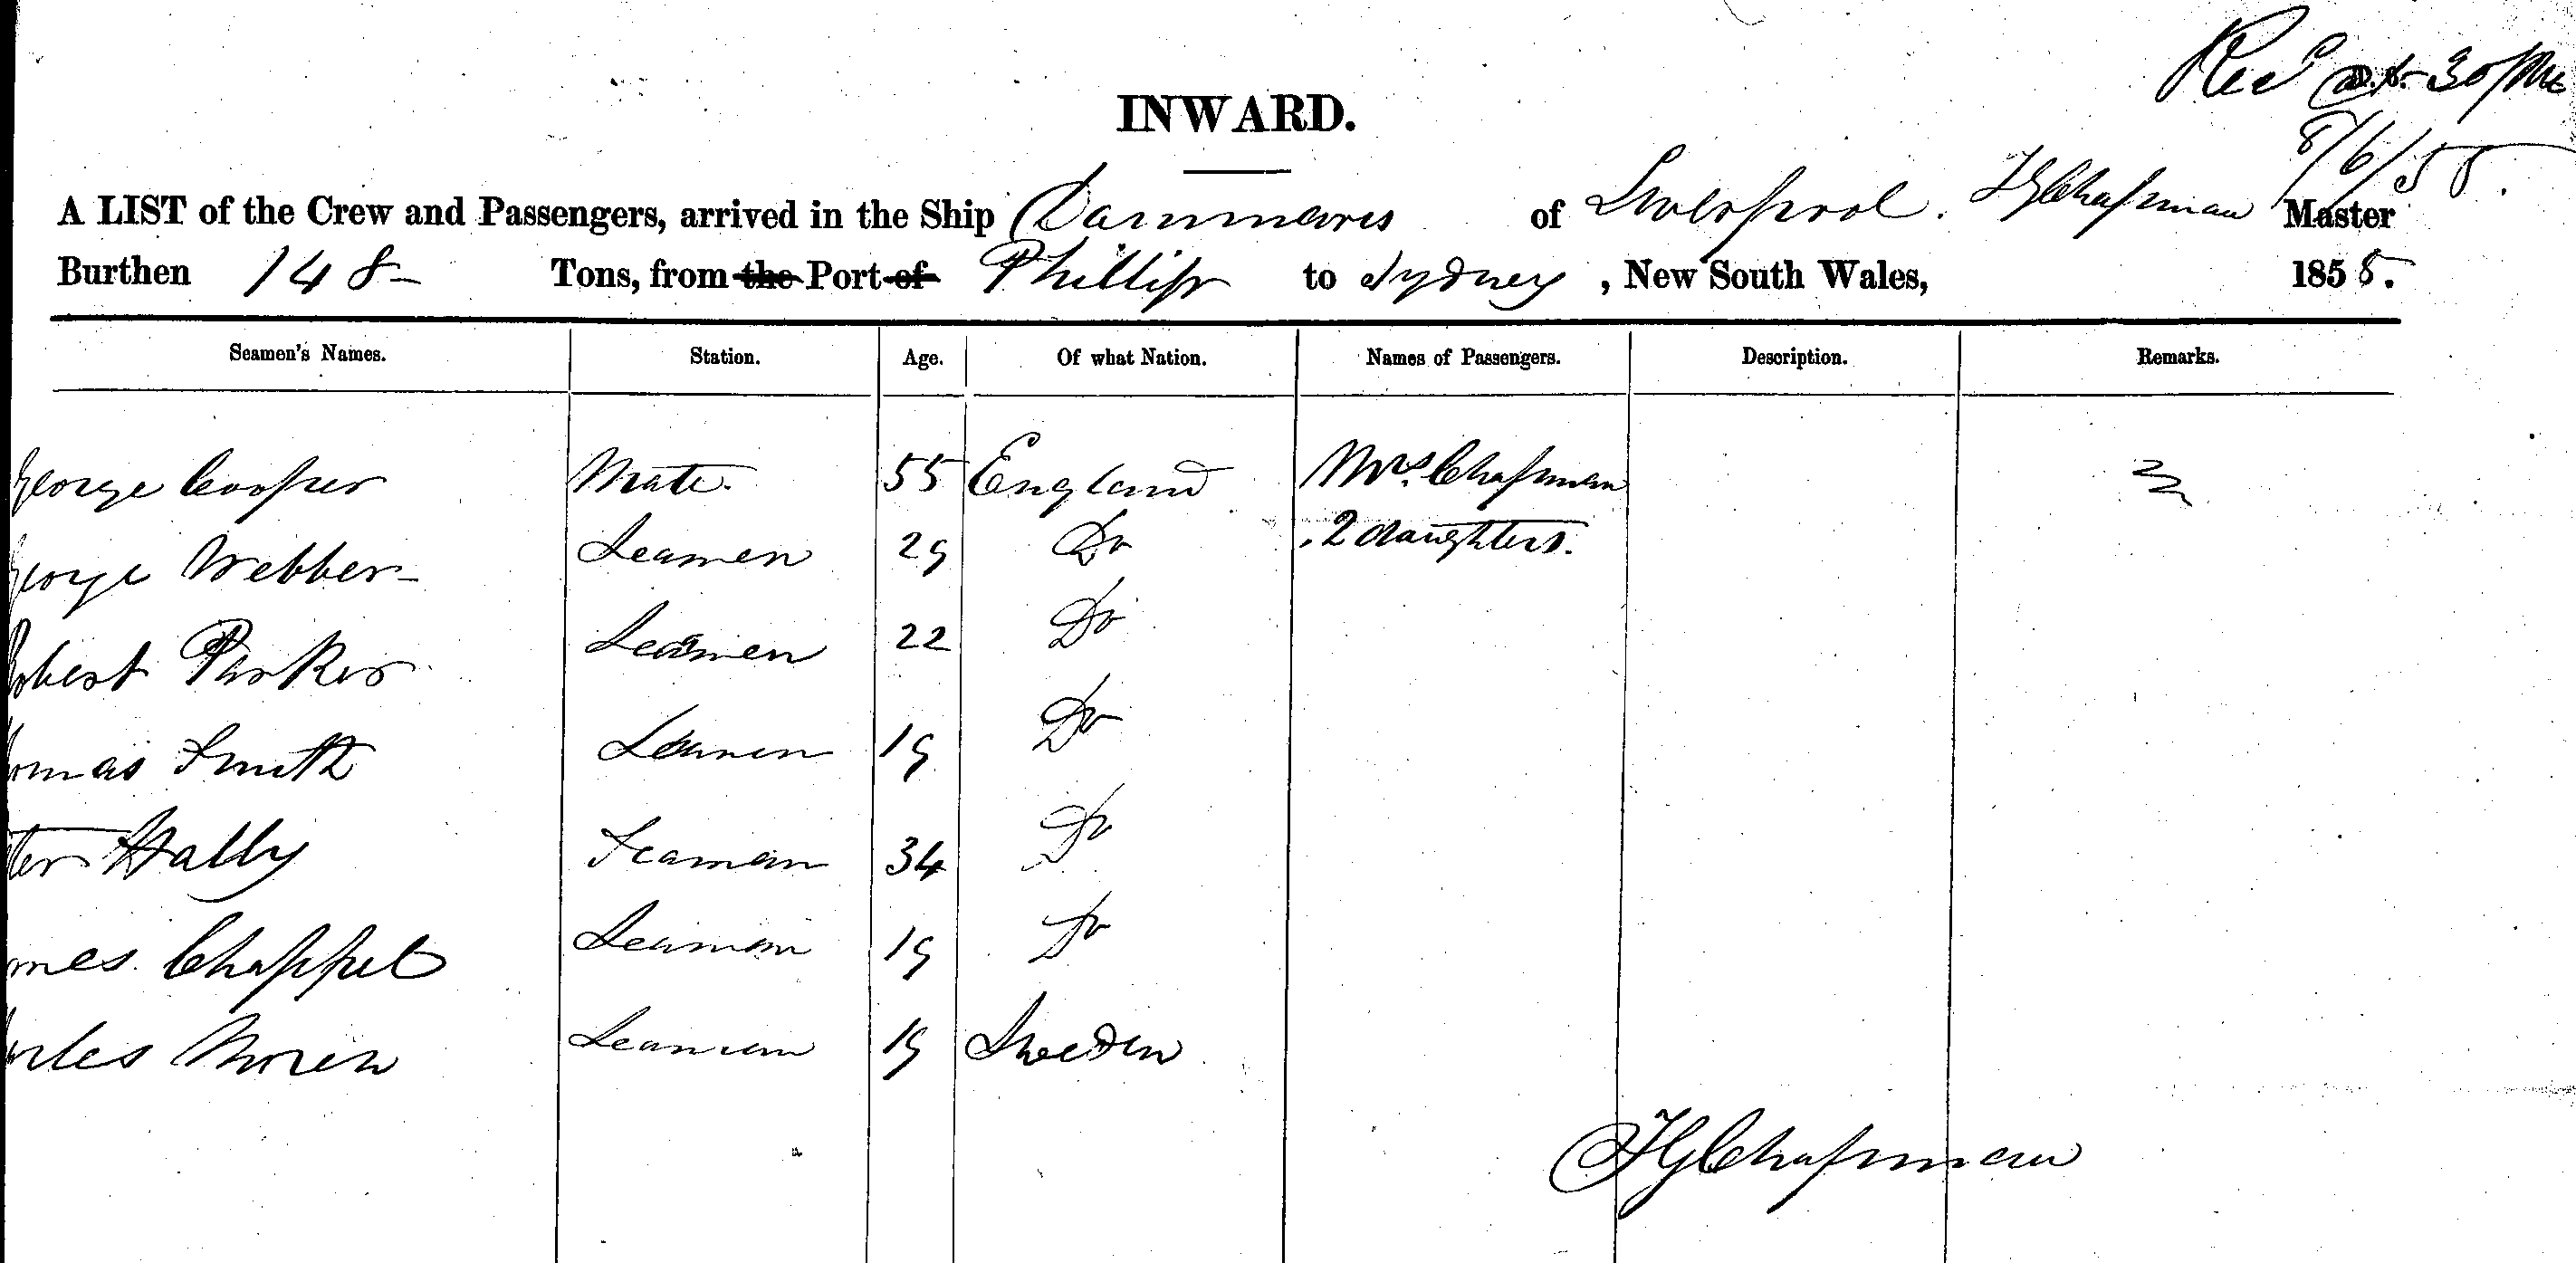 Recd at 30/Me
8/6/58.
INWARD.
A LIST of the Crew and Passengers, arrived in the Ship Dammaris of Liverpool. HGChapman Master
Burthen 148- Tons, from the Port of Phillip to Sydney, New South Wales, 1858.
Seamen's Names. Station. Age. Of what Nation. Names of Passengers. Description. Remarks.
George Cooper Mate. 55 England Mrs. Chapman
George Webber- Seamen 29 Do 2 daughters.
Robert Parker Seamen 22 Do
omas Smith Seamen 19 Do
ter Hally Seaman 34 Do
mes Chappel Seaman 19 Do
arles Moren Seaman 19 Sweden
HGChapman